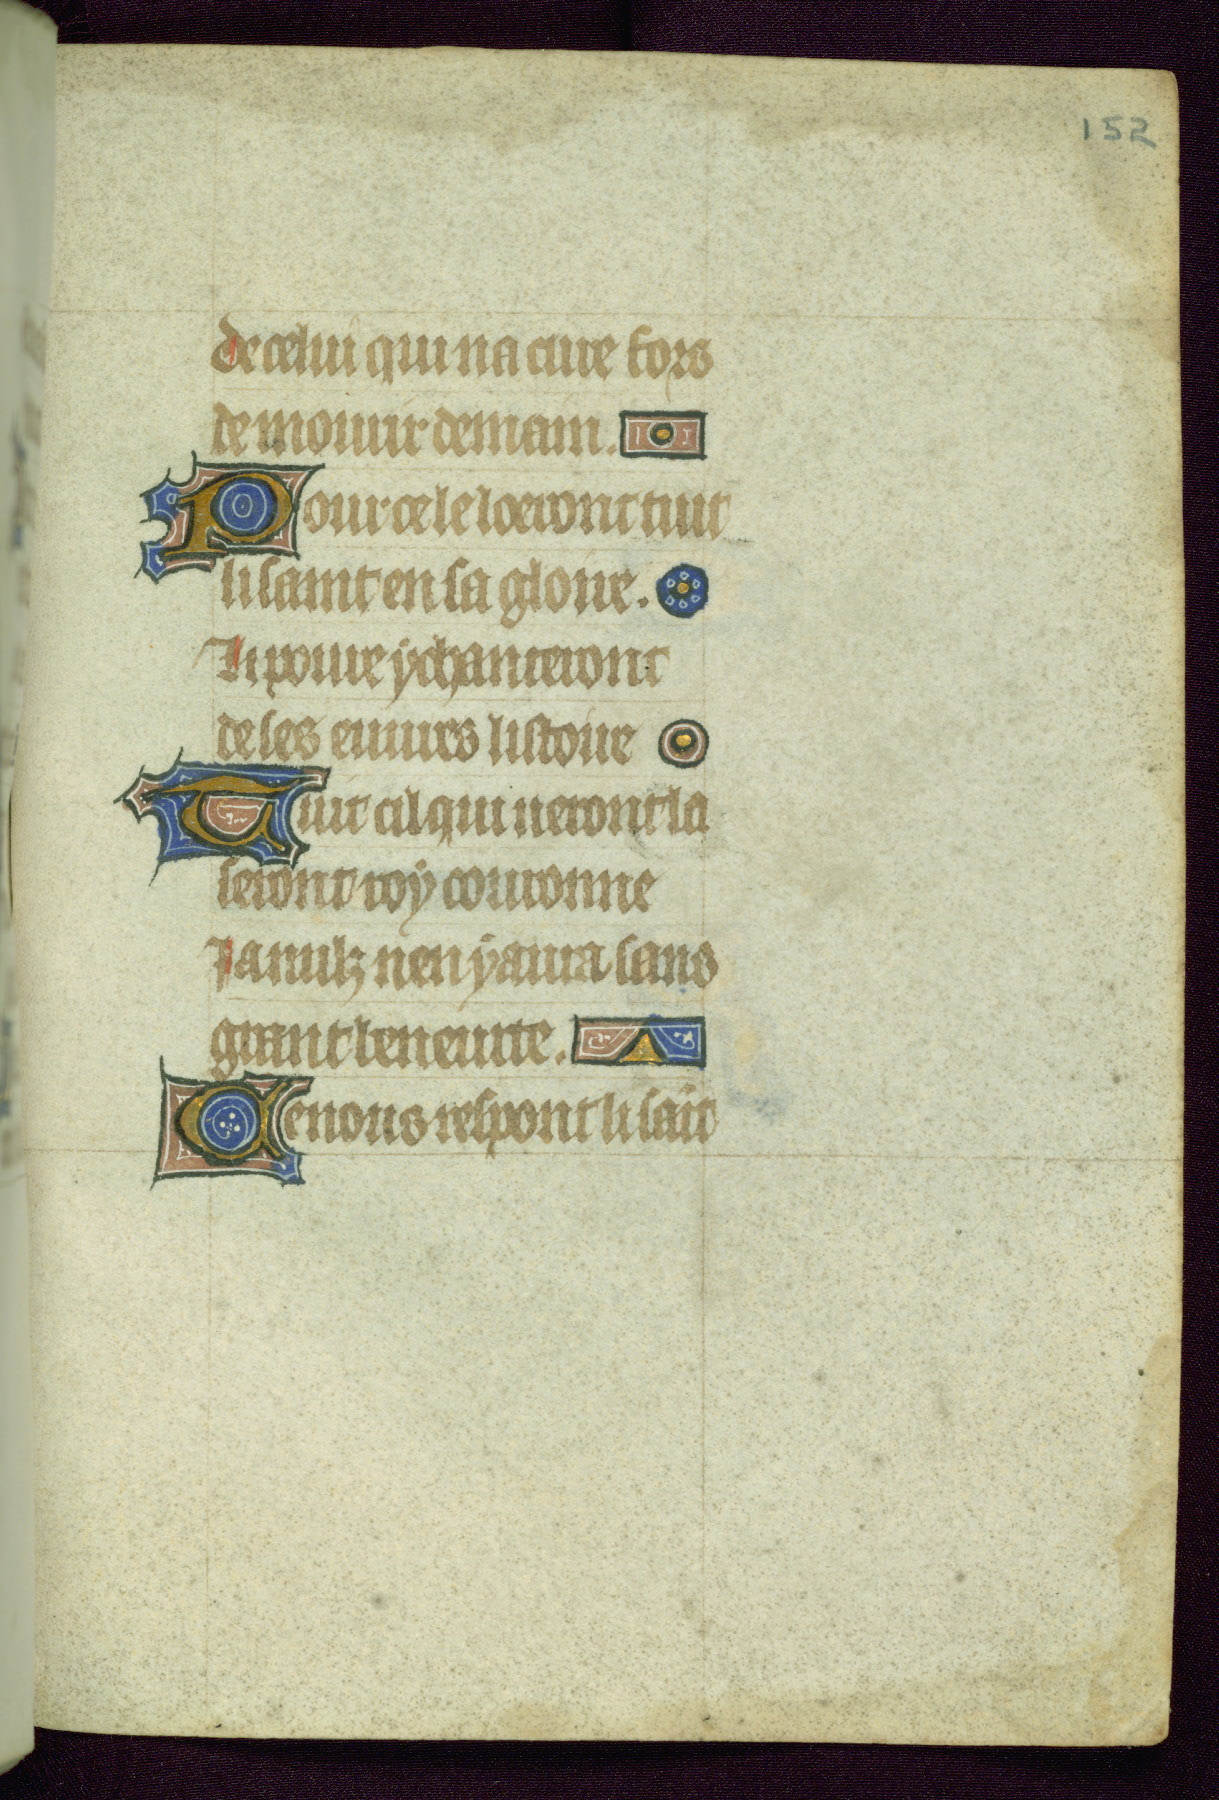 152
de celui qui na cure fors
de mouuir demain.
Pour ce le loeront tuit
li saint en sa gloire.
Li poure ÿ chanteront
de ses euures listoire
Tuit cil qui uerront la
seront roÿ couronne
Ja nulz nen ÿ aura sans
grant leneurte.
Ce nous respont li sait